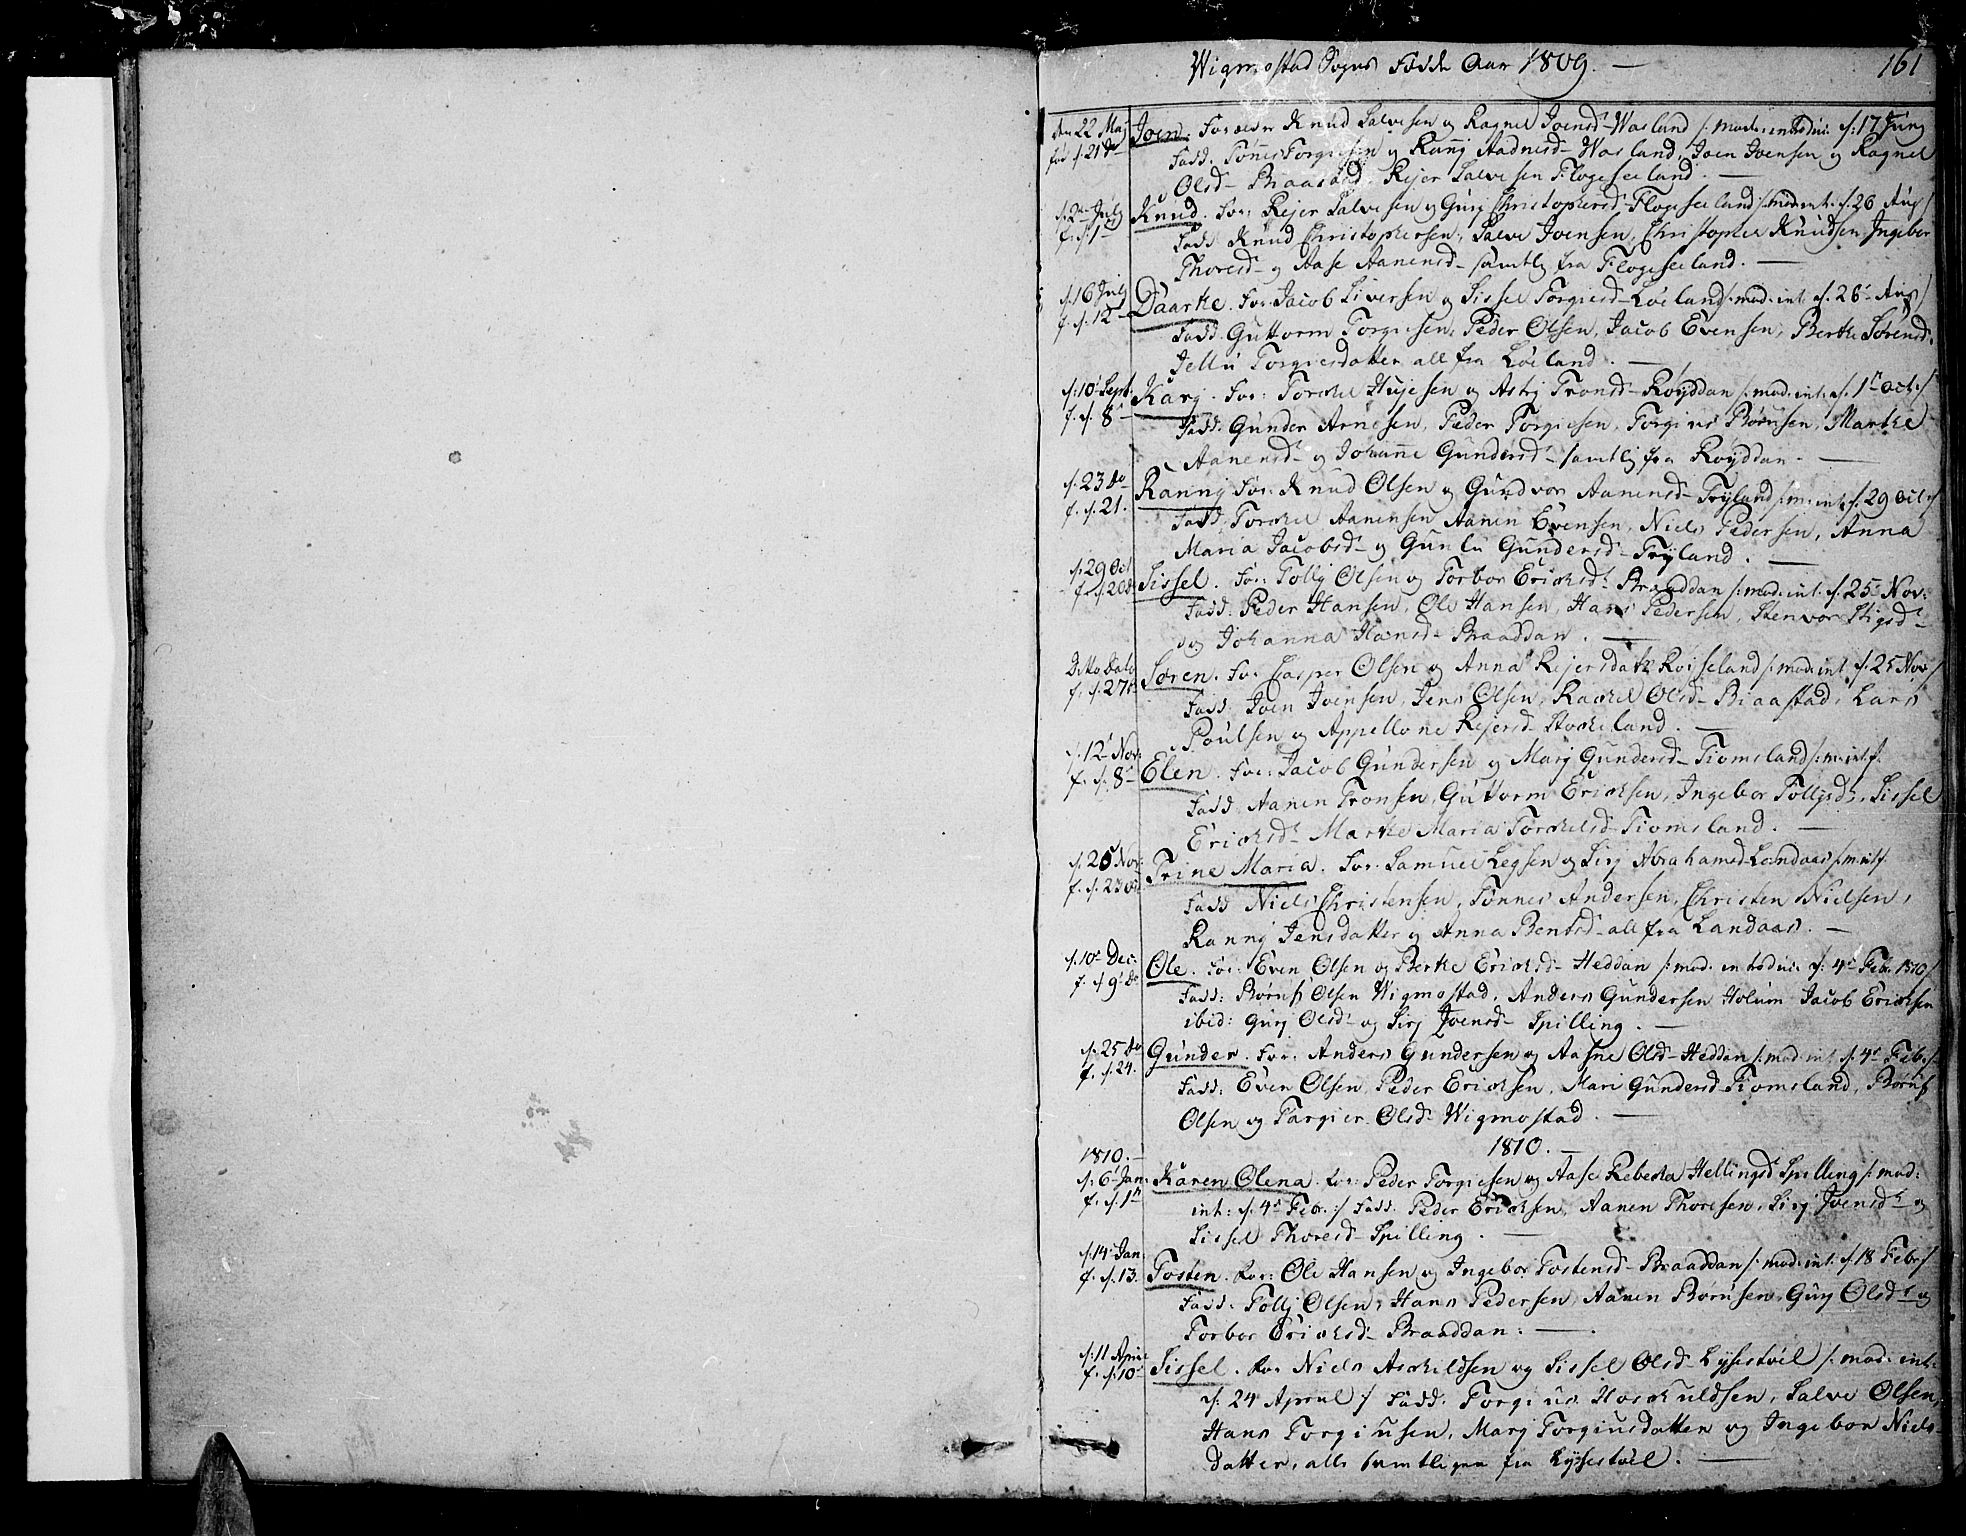 Wigmostad Sogns Fødde Aar 1809. — 161
den 22 Maj Joen. Forældre Knud Salvesen og Ragnel Joensd– Wasland /: mod: introduc: d: 17 Junj
fød d. 21 do Fadd: Tønnes Torgiesen og Ranj Aadnesd– Wasland, Joen Joensen og Ragnel
Olsd– Braastad, Rejer Salvesen Flogeseeland. —
d: 2n Julj Knud. For: Rejer Salvesen og Gurj Christophersd– Flogeseeland /: mod: int: d. 26 Aug /
f. d. 1 — Fadd: Knud Christophersen, Salve Joensen, Christopher Knudsen, Ingebor
Thoresd– og Aase Aanensd– samtlig fra Flogeseeland. —
d. 16 Julj Daarthe. For: Jacob Siversen og Sissel Torgiesd– Løeland /: mod: int: d. 26 Aug /
f. d. 12 — Fadd: Guttorm Torgiesen, Peder Olsen, Jacob Evensen, Berthe Sørensd.
Jellu Torgiesdatter all fra Løeland. —
d: 10 Sept: Karj. For: Torchel Hujesen og Astrj Tronsd– Røyddan /: mod: int: d. 1n Oct: /
f. d. 8 — Fadd: Gunder Arnesen, Peder Torgiesen, Torgius Børusen, Marthe
Aanensd– og Johanne Gundersd– samtlig fra Røyddan. —
d. 23 do Rannj For: Knud Olsen og Gundvor Aanensd– Tryland /: m: int: d. 29 Oct: /
f. d. 21. Fadd: Torchel Aanensen Aanen Evensen, Niels Pedersen, Anna
Maria Jacobsd– og Gunlu Gundersd– Tryland. —
d. 29 Oct Sissel. For: Tollj Olsen og Torbor Erichsd– Braaddan /: mod: int: d. 25 Nov:
f. d. 20 do Fadd: Peder Hansen, Ole Hansen, Hans Pedersen, Stenvor Stigsd–
og Johanna Hansd– Braaddan. —
Ditto Dato Søren. For: Casper Olsen og Anna Rejersdatter Røiseland /: mod: int: d. 25 Nov /
f. d. 27 Fadd: Joen Joensen, Jens Olsen, Rachel Olsd– Braastad, Lars
Poulsen og Appellone Rejersd– Stocheland. —
d. 12 Nov: Elen. For: Jacob Gundersen og Marj Gundersd– Tiomsland /: m: int
f. d. 8 — Fadd: Aanen Tronsen, Guttorm Erichsen, Ingebor Tolljsd–, Sissel
Erichsd– Marthe Maria Torchelsd– Tiomsland. —
d. 26 Nov: Trine Maria. For: Samuel Legsen og Sirj Abrahamsd– Landaas /: m: int
f. d. 23 Fadd: Niels Christensen, Tønnes Andersen, Christen Nielsen,
Rannj Jensdatter og Anna Bentsd– all fra Landaas. —
d. 10 Dec: Ole. For: Even Olsen og Berthe Erichsd– Heddan /: mod: introduc: d: 4 Feb: 1810 /
f. d 9 do Fadd: Børuf Olsen Wigmostad, Anders Gundersen Holum Jacob Erichsen
ibid: Gurj Olsd– og Sirj Joensd– Spilling. —
d. 25 do Gunder. For: Anders Gundersen og Aasne Olsd– Heddan /: mod: int: d. 4 Feb: /
f. d. 24. Fadd: Even Olsen Peder Erichsen, Mari Gundersd Tiomsland, Børuf
Olsen og Targier Olsd– Wigmostad. —
1810. — 1810. —
d. 6 Jan: Karen Olena. For: Peder Torgiesen og Aase Rebecka Hellingsd– Spilling /: mod:
f. d. 1n int: d. 4 Feb: / Fadd: Peder Erichsen, Aanen Thoresen, Sirj Joensd– og
Sissel Thoresd– Spilling. —
d. 14 Jan: Tosten. For: Ole Hansen og Ingebor Tostensd– Braaddan /: mod: int: d 18 Febr /
f. d. 13. Fadd: Tollj Olsen, Hans Pedersen, Aanen Børusen, Gurj Olsd– og
Torbor Erichsd– Braaddan: —
d: 11 April Sissel. For: Niels Aschildsen og Sissel Olsd– Lyssestøel /: mod: int:
f. d. 10 d. 24 Aprul / Fadd: Torgius Horskuldsen, Salve Olsen,
Hans Torgiusen, Marj Torgiusdatter og Ingebor Niels-
datter, alle samtligen fra Lyssestøel. —